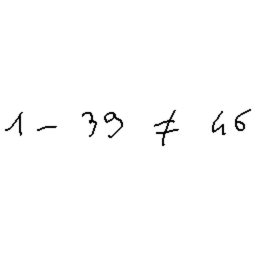 1 - 39 ≠ 46